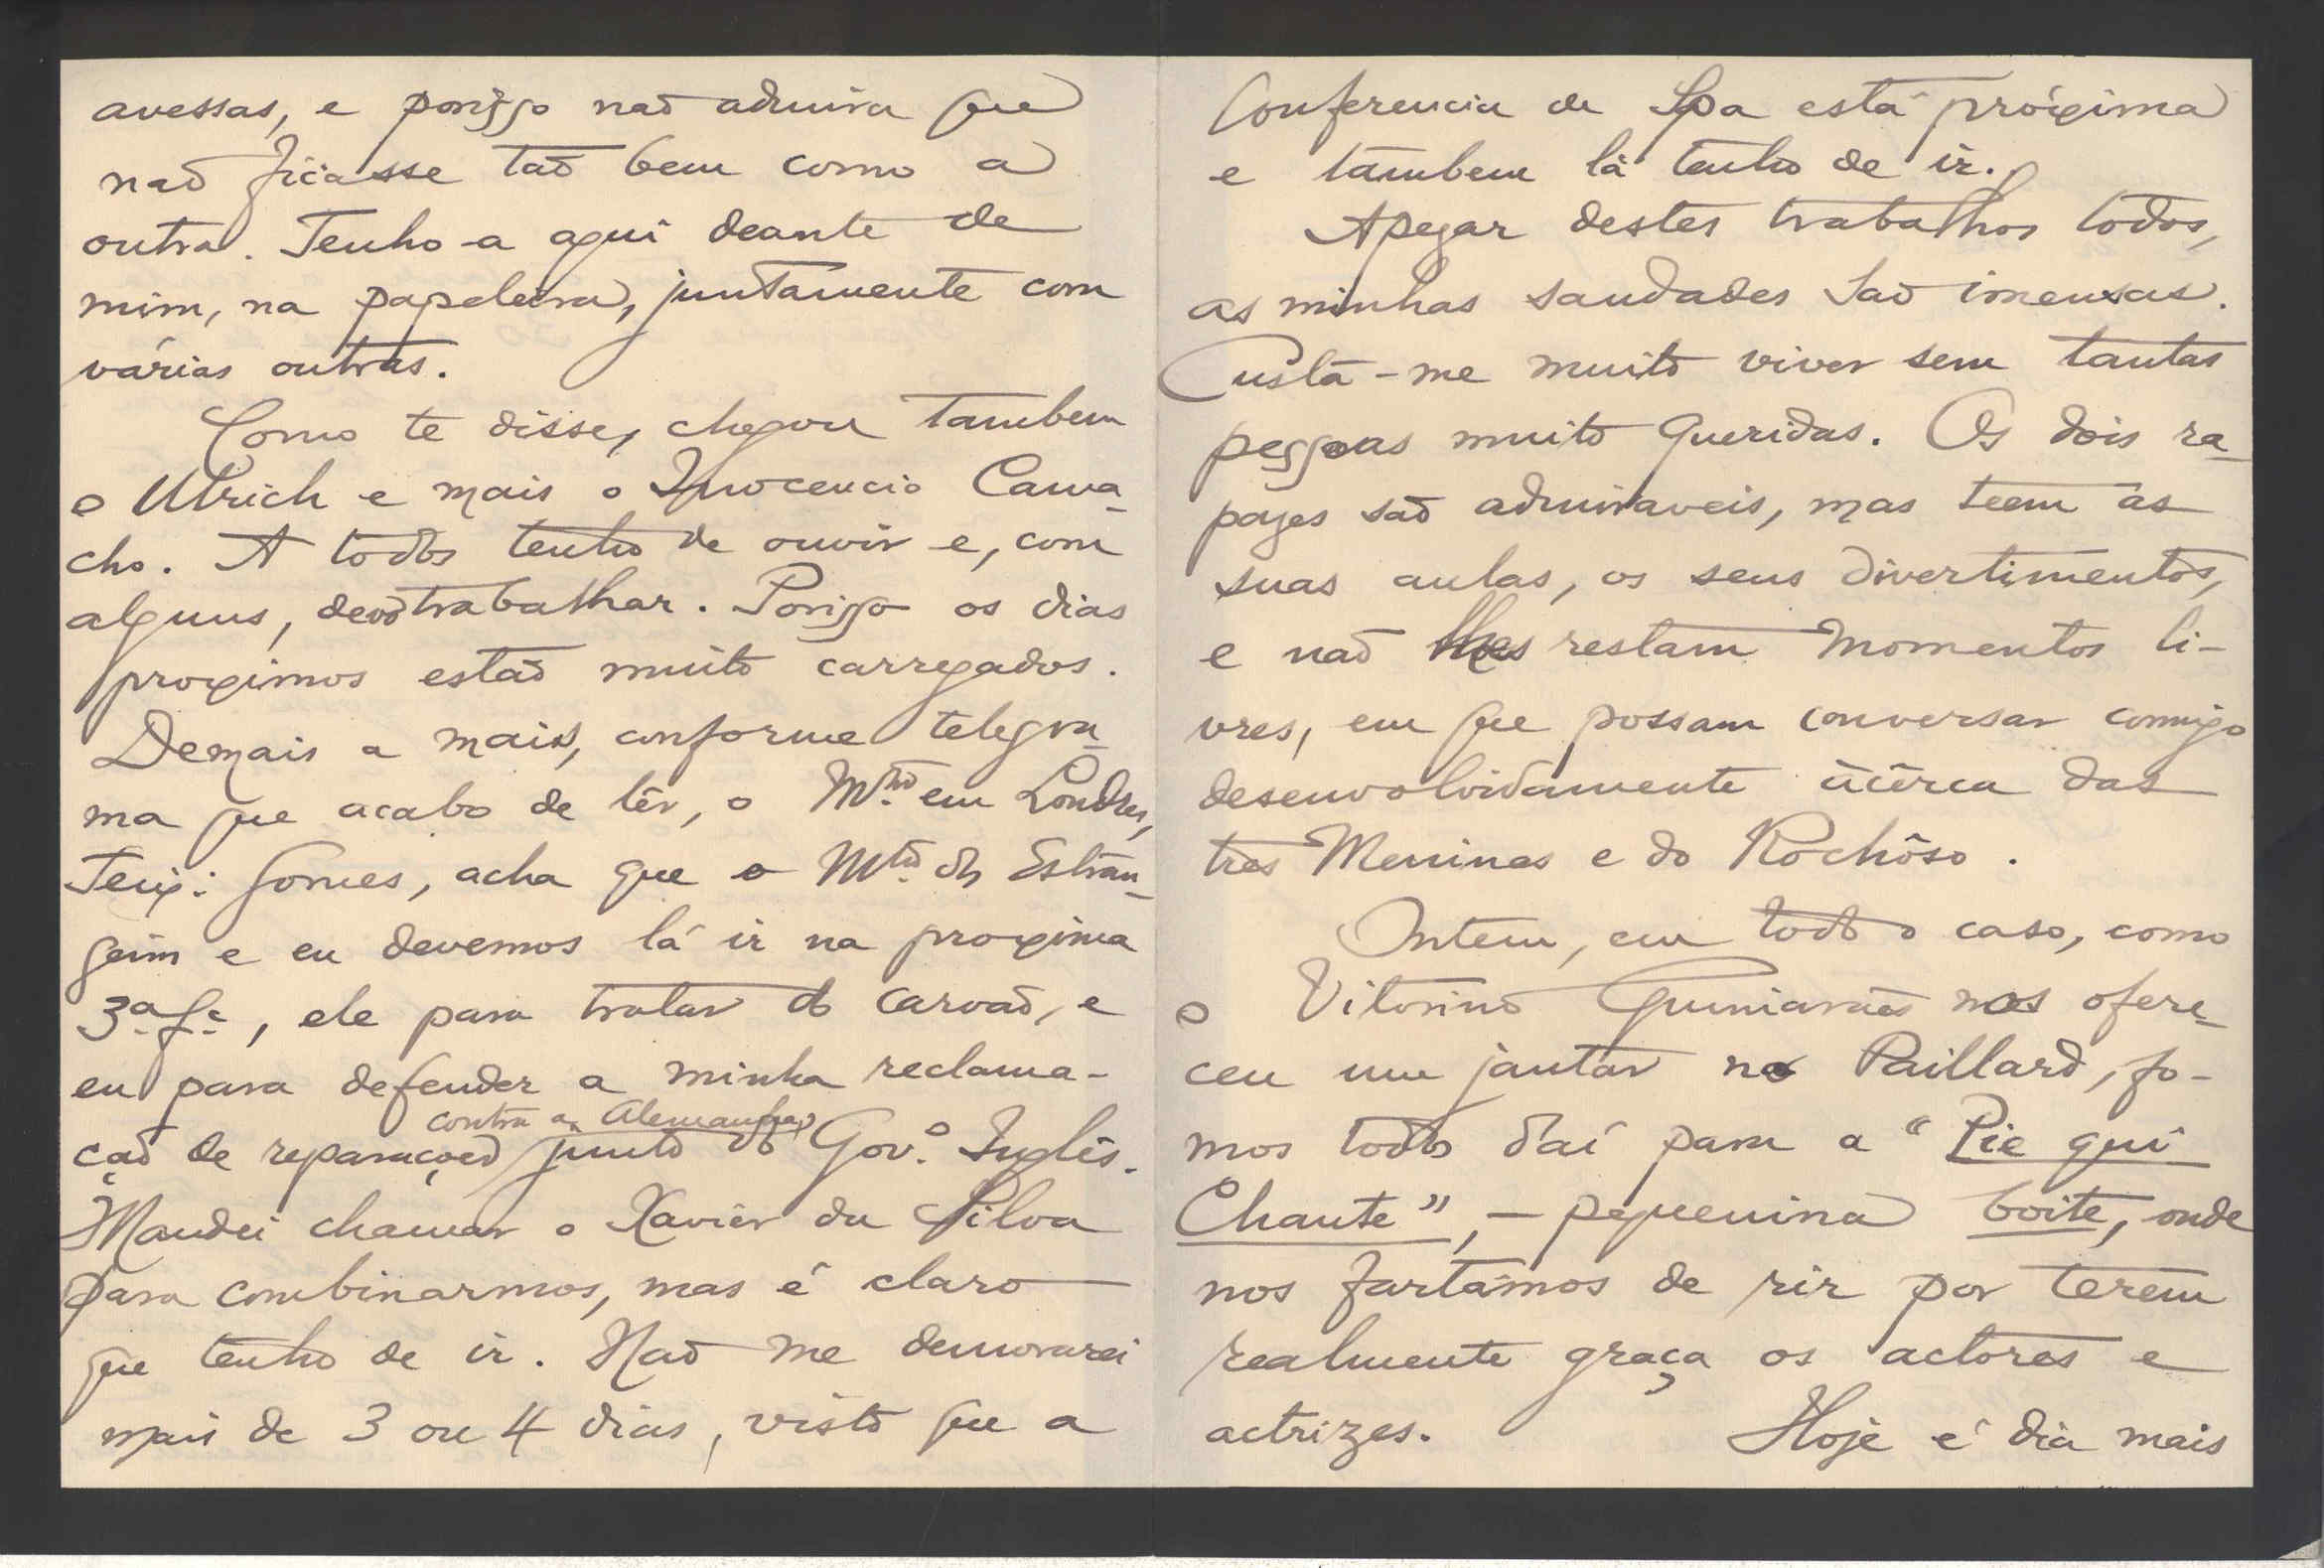 avessas, e porisso não admira que
não ficasse tão bem como a
outra. Tenho-a aqui deante de
mim, na papeleira, juntamente com
várias outras.
Como te disse, chegou tambem
o Ulrich e mais o Inocencio Cama-
cho. A todos tenho de ouvir e, com
alguns, devo trabalhar. Porisso os dias
proximos estão muito carregados.
Demais a mais, conforme telegra-
ma que acabo de lêr, o Mtro. em Londres,
Teix: Gomes, acha que o Mtro. dos Estran-
geiros e eu devemos lá ir na proxima
3ª. fª., ele para tratar do carvão, e
eu para defender a minha reclama-
contra a Alemanha,
ção de reparações junto do Gov.º Inglês.
Mandei chamar o Xavier da Silva
para combinarmos, mas é claro
que tenho de ir. Não me demorarei
mais de 3 ou 4 dias, visto que a
Conferencia de Spa está próxima
e tambem lá tenho de ir.
Apezar destes trabalhos todos,
as minhas saudades são imensas.
Custa-me muito viver sem tantas
pessoas muito queridas. Os dois ra-
pazes são admiraveis, mas teem as
suas aulas, os seus divertimentos,
e não lhes restam momentos li-
vres, em que possam conversar comigo
desenvolvidamente àcêrca das
tres Meninas e do Rochôso.
Ontem, em todo o caso, como
o Vitorino Guimarães nos ofere-
ceu um jantar no Paillard, fo-
mos todos daí para a "Pie qui
Chante", - pequenina boite, onde
nos fartámos de rir por terem
realmente graça os actores e
actrizes. Hoje é dia mais